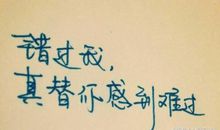 错过我，
真替你感到难过